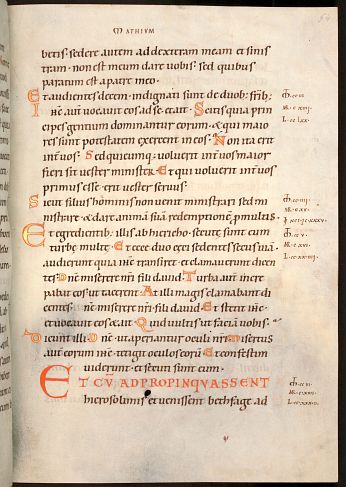 MATHEUM
betis. sedere autem ad dexteram meam et sinis
tram. non est meum dare uobis. sed quibus
paratum est a patre meo.
Et audientes decem. indignati sunt de duob; frīb;
Ihc aut uocauit eos ad se. et ait. Scitis quia prin
cipes gentium dominantur eorum. & qui maio
res sunt potestatem exercent in eos. Non ita erit
int uos. Sed quicumq; uoluerit int uos maior
fieri sit uester minister. Et qui uoluerit int uos
primus esse. erit uester seruus.
Sicut filius hominis non uenit ministrari sed mi
nistrare. & dare animā suā redemptionē p multis.
Et egredientib; illis ab hiericho. secute sunt eum
turbe multe. Et ecce duo ceci sedentes secus uiā.
audierunt quia ihc transiret. et clamauerunt dicen
tes. Dne miserere nri fili dauid. Turba aut incre
pabat eos ut tacerent. At illi magis clamabant di
centes. dne miserere nri fili dauid. Et stetit ihc.
et uocauit eos. et ait. Quid uultis ut faciā uobis.
Dicunt illi. Dne. ut aperiantur oculi nri. Misertus
aut eorum ihc. tetigit oculos eorū. Et confestim
uiderunt. et secuti sunt eum.
ET CŪ ADPROPINQVASSENT
hierosolimis. et uenissent bethfage. ad